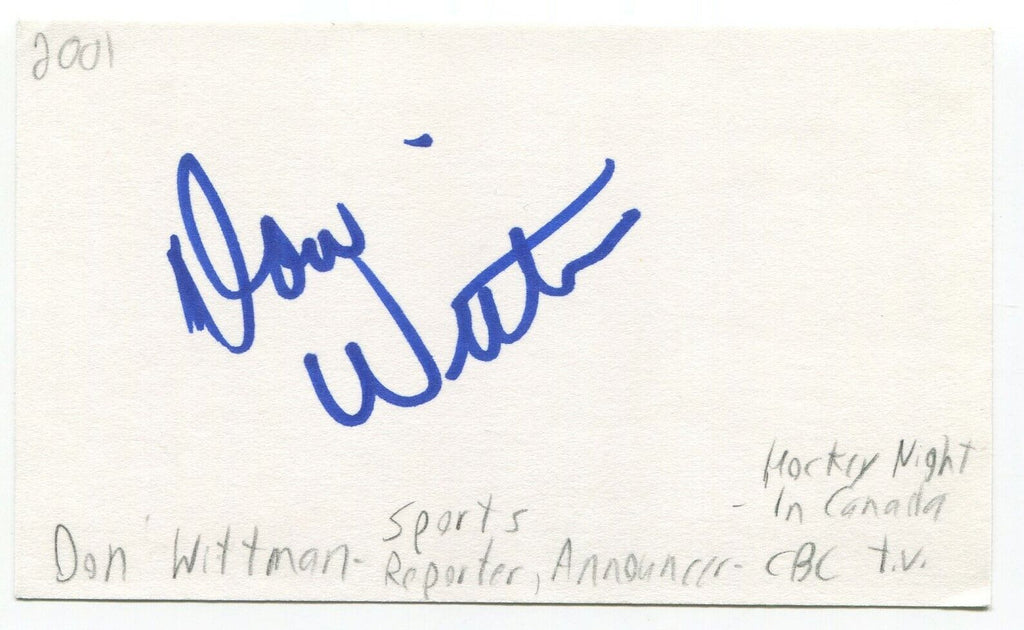 2001
Don Wittman
Hockey Night
- In Canada
Sports
Don Wittman- Reporter, Announcer- CBC T.V.